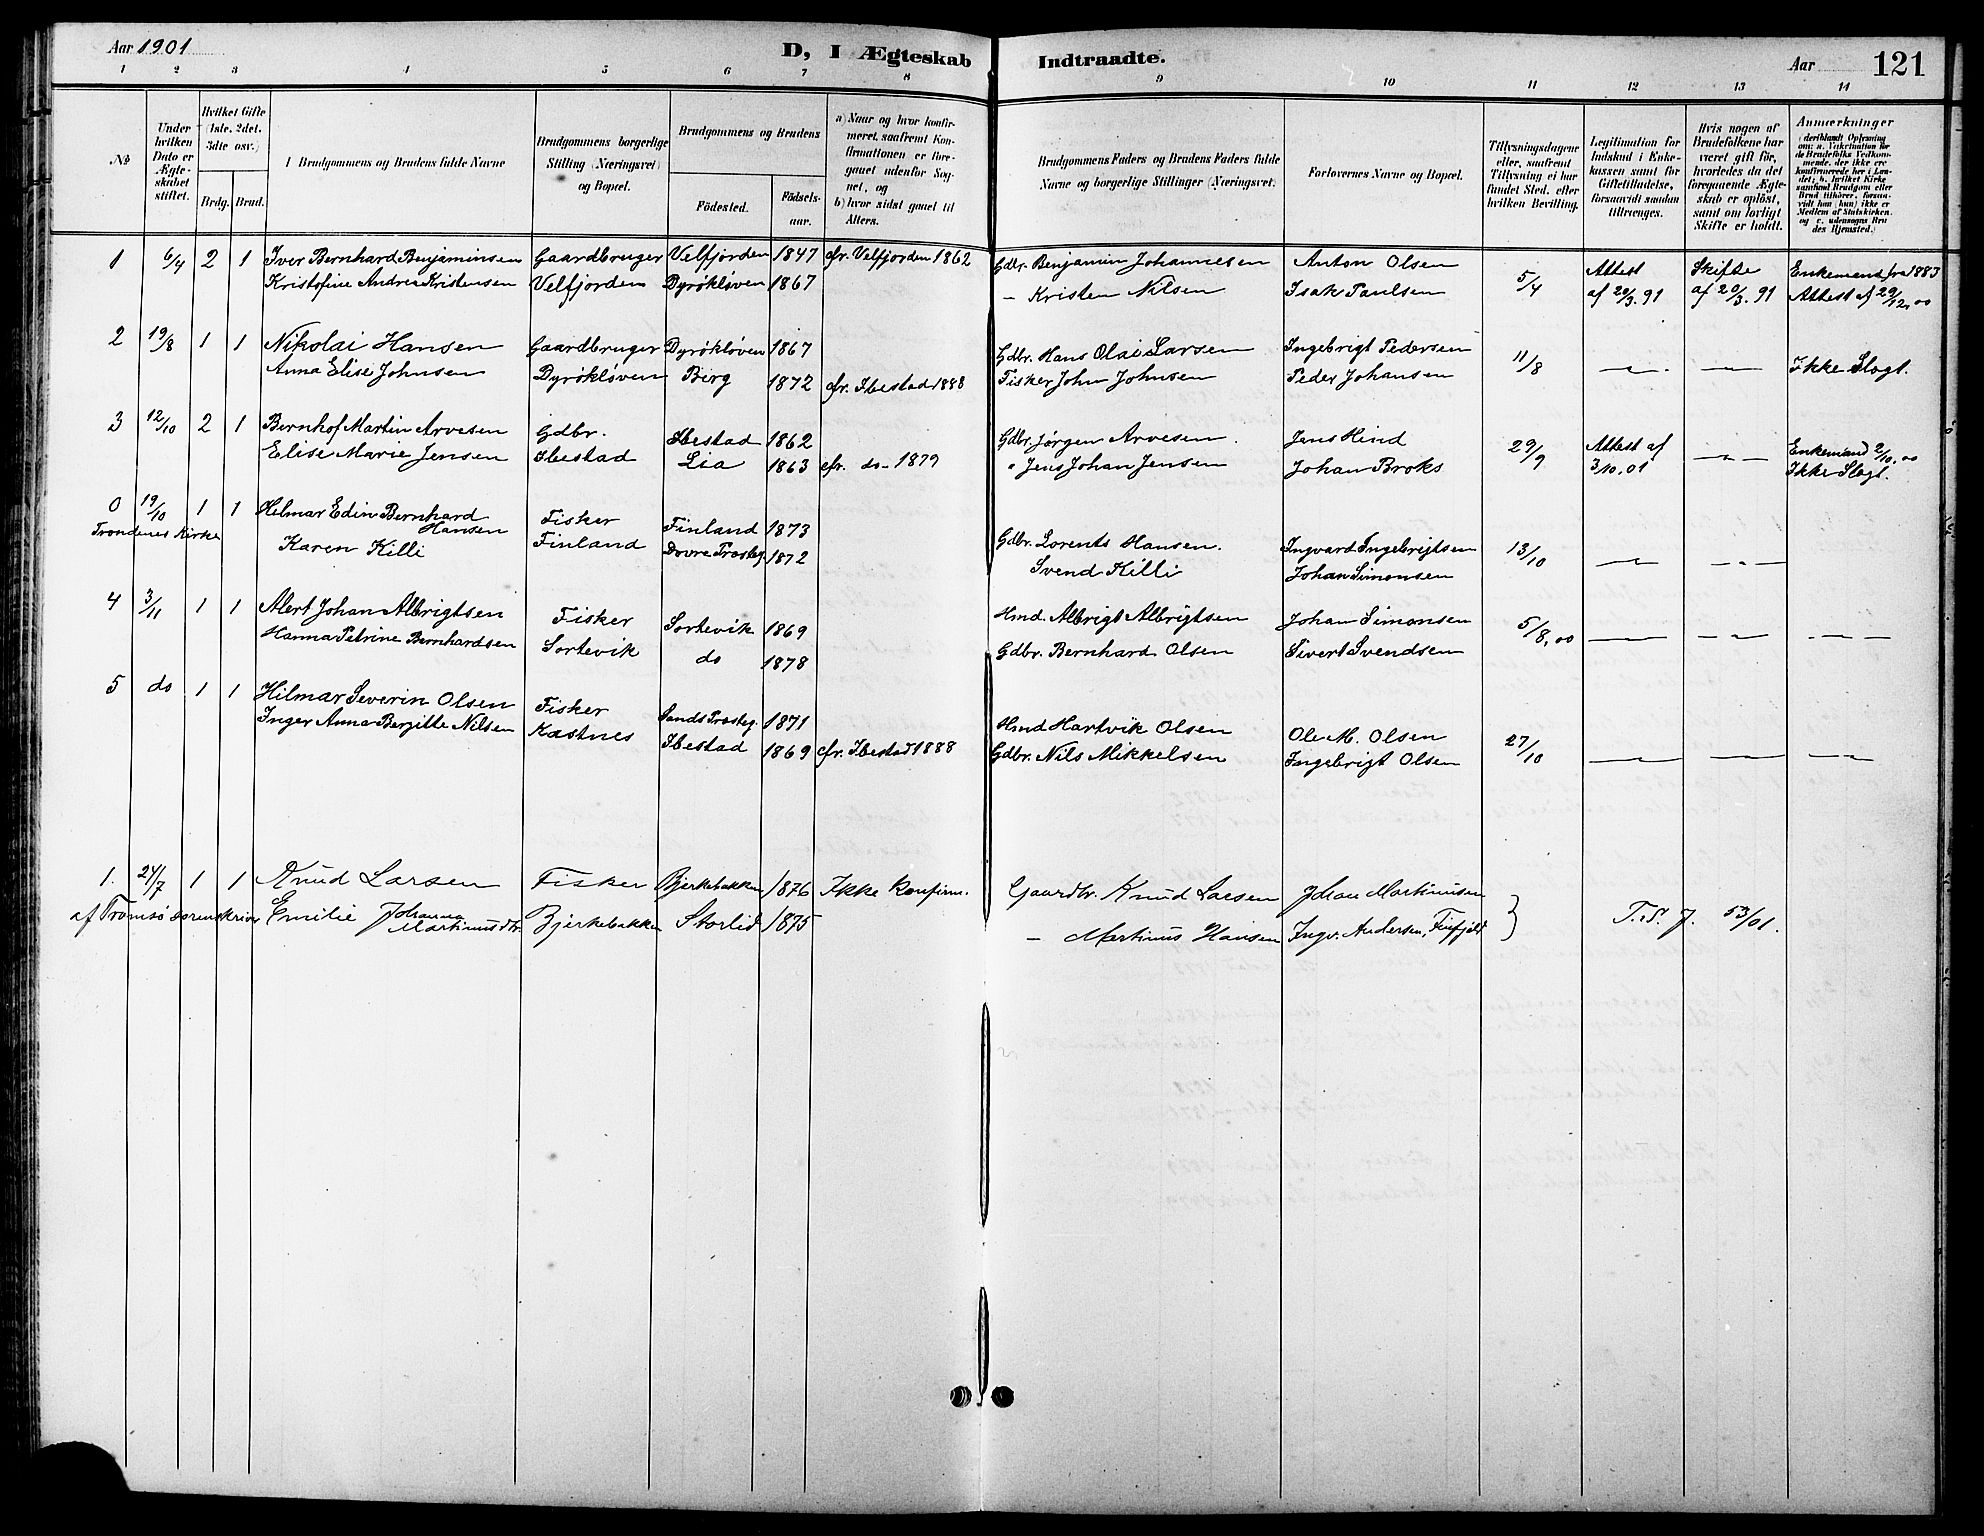 Aar 1901
D, I Ægteskab Indtraadte.
Aar 121
1 2 3 4 5 6 7 8 9 10 11 12 13 14
№
Under hvilken Dato er Ægteskabet stiftet.
Hvilket Gifte (1ste, 2det, 3die osv.)
Brdg. Brud.
Brudgommens og Brudens fulde Navne
Brudgommens borgerlige Stilling (Næringsvei) og Bopæl.
Brudgommens og Brudens
Födested. Födselsaar.
a) Naar og hvor konfirmeret, saafremt Konfirmationen er foregaaet udenfor Sognet, og
b) hvor sidst gaaet til Alters.
Brudgommens Faders og Brudens Faders fulde Navne og borgerlige Stillinger (Næringsvei).
Forlovernes Navne og Bopæl.
Tillysningsdagene eller, saafremt Tillysning ei har fundet Sted, efter hvilken Bevilling.
Legitimation for Indskud i Enkekassen samt for Giftetilladelse, forsaavidt saadan tiltrænges.
Hvis nogen af Brudefolkene har været gift før, hvorledes da det foregaaende Ægteskab er opløst, samt om lovligt Skifte er holdt.
Anmærkninger
(deriblandt Oplysning om: a. Vakcination for de Brudefolks Vedkommende, der ikke ere konfirmerede her i Landet; b. hvilket Kirkesamfund Brudgom eller Brud tilhører, forsaavidt han (hun) ikke er Medlem af Statskirken, og c. udensogns Brudes Hjemsted.)
1 6/4 2 1 Iver Bernhard Benjaminsen Gaardbruger Velfjorden 1847 cfr. Velfjorden 1862 Gdbr. Benjamin Johannesen Anton Olsen 5/4 Attest Skifte Enkemand fra 1883
Kristofine Andrea Kristensen Velfjorden Dyrøkløven 1867 – Kristen Nilsen Isak Paulsen af 20/3. 91 af 20/3. 91 Attest af 29/12.00
2 19/8 1 1 Nikolai Hansen Gaardbruger Dyrøkløven 1867 Gdbr. Hans Olai Larsen Ingebrigt Pedersen 11/8 — — Ikke Slogt.
Anna Elise Johnsen Dyrøkløven Berg 1872 cfr. Ibestad 1888 Fisker John Johnsen Peder Johansen
3 12/10 2 1 Bernhof Martin Arvesen Gdbr. Ibestad 1862 Gdbr. Jørgen Arvesen. Jens Hind 29/9 Attest af — Enkemand 2/10.00
Elise Marie Jensen Ibestad Lia 1863 cfr. do – 1879 " Jens Johan Jensen Johan Broks 3/10.01 Ikke Slogt.
0 19/10 1 1 Hilmar Edin Bernhard Hansen Fisker Finland 1873 Gdbr. Lorents Hansen. Ingvard Ingebrigtsen 13/10 — —
Trondenes Kirke Karen Killi Finland Dovre Prosteg. 1872 Svend Killi Johan Simonsen
4 3/11 1 1 Alert Johan Albrigtsen Fisker Sortevik 1869 Hmd. Albrigt Albrigtsen Johan Simonsen 5/8,00 — — —
Hanna Petrine Bernhardsen Sortevik do 1878 Gdbr. Bernhard Olsen Sivert Svendsen
5 do 1 1 Hilmar Severin Olsen Fisker Sands Prosteg. 1871 Hmd Hartvik Olsen Ole M. Olsen 27/10 — — —
Inger Anna Bergitte Nilsen Kastnes Ibestad 1869 cfr. Ibestad 1888 Gdbr. Nils Mikkelsen Ingebrigt Olsen
1. 24/7 1 1 Knud Larsen Fisker Bjerkebakken 1876 Ikke konfirm. Gaardbr. Knud Larsen Johan Martinusen
af Tromsø Sorenskriver Emilie Johanna Martinusdtr. Bjerkebakken Storlid 1875 – Martinus Hansen Ingv. Andersen, Finfjeld } T.S. J. 53/01.